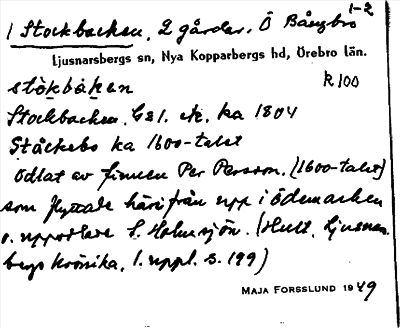 1-2
1 Stockbacken, 2 gårdar, Ö Bångbro
Ljusnarsbergs sn, Nya Kopparbergs hd, Örebro län.
stòkbàken R 100
Stockbacken, GS1. etc. ka 1804
Ståckebo ka 1600-talet
Odlat av finnen Per Persson, (1600-talet)
som flyttade härifrån upp i ödemarken
o. uppodlade S. Holmsjön. (Hult, Ljusnars
bergs krönika, 1. uppl. s. 199)
MAJA FORSSLUND 1949